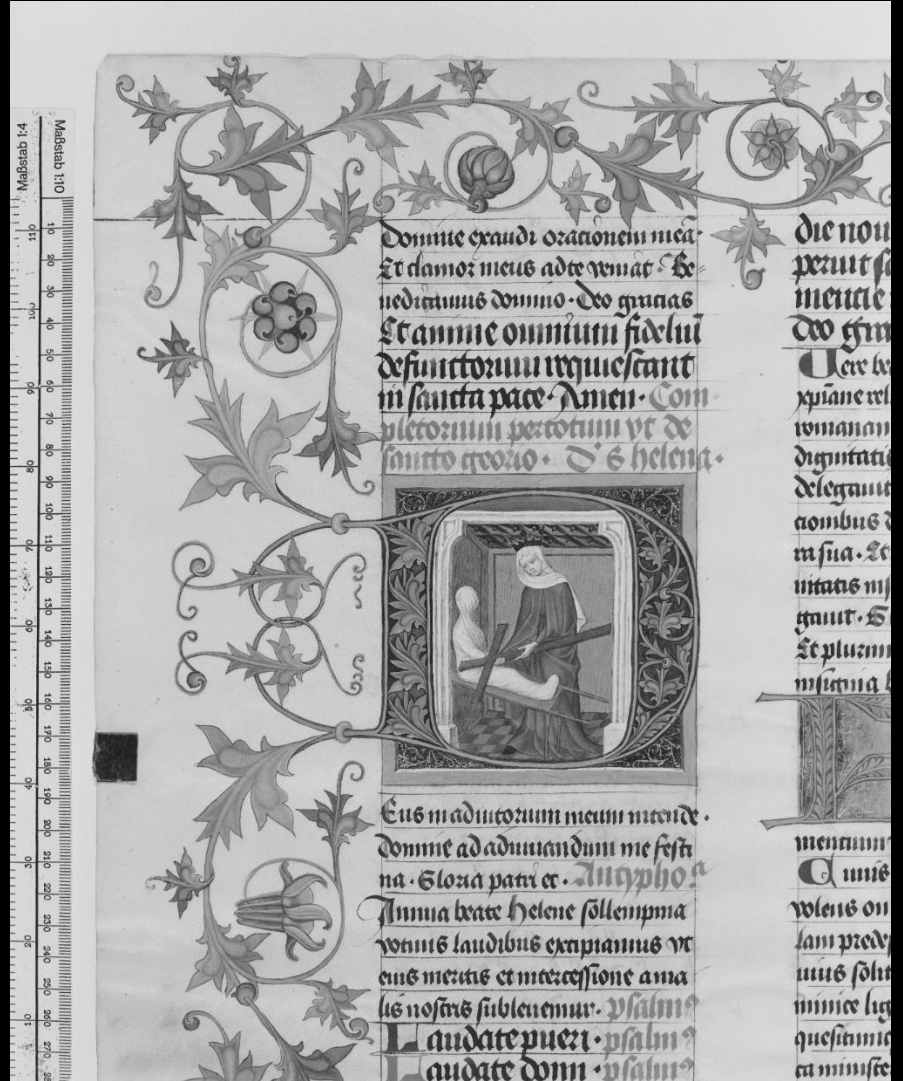 Maßstab 1:4
Maßstab 1:10
Domine exaudi orationem meā·
Et clamor meus ad te veniat· Be=
nedicamus domino· Deo gracias
Et anime omnium fideliū
defunctorum requiescant
in sancta pace· Amen· Com
pletorium per totum vt de
sancto georio· D' S helena·
D
Eus in adiutorium meum intende·
domine ad adiuuandum me festi
na· Gloria patri et· Antypho
Annua beate Helene sollempnia
votiuis laudibus excipiamus vt
eius meritis et intercessione a ma
lis nostris subleuemur· psalmꝰ
Laudate pueri· psalmꝰ
Laudate domi· psalmꝰ
die nou
peruit
mencie
deo gra
Uere be
xpiane rel
romanam
dignitati
delegauit
cionibus
ra sua· Et
nitatis
gauit· S
Et plurim
insignia
mentium
C
volens
lam prede
uius solit
minice lig
quesitiuit
ta ministe